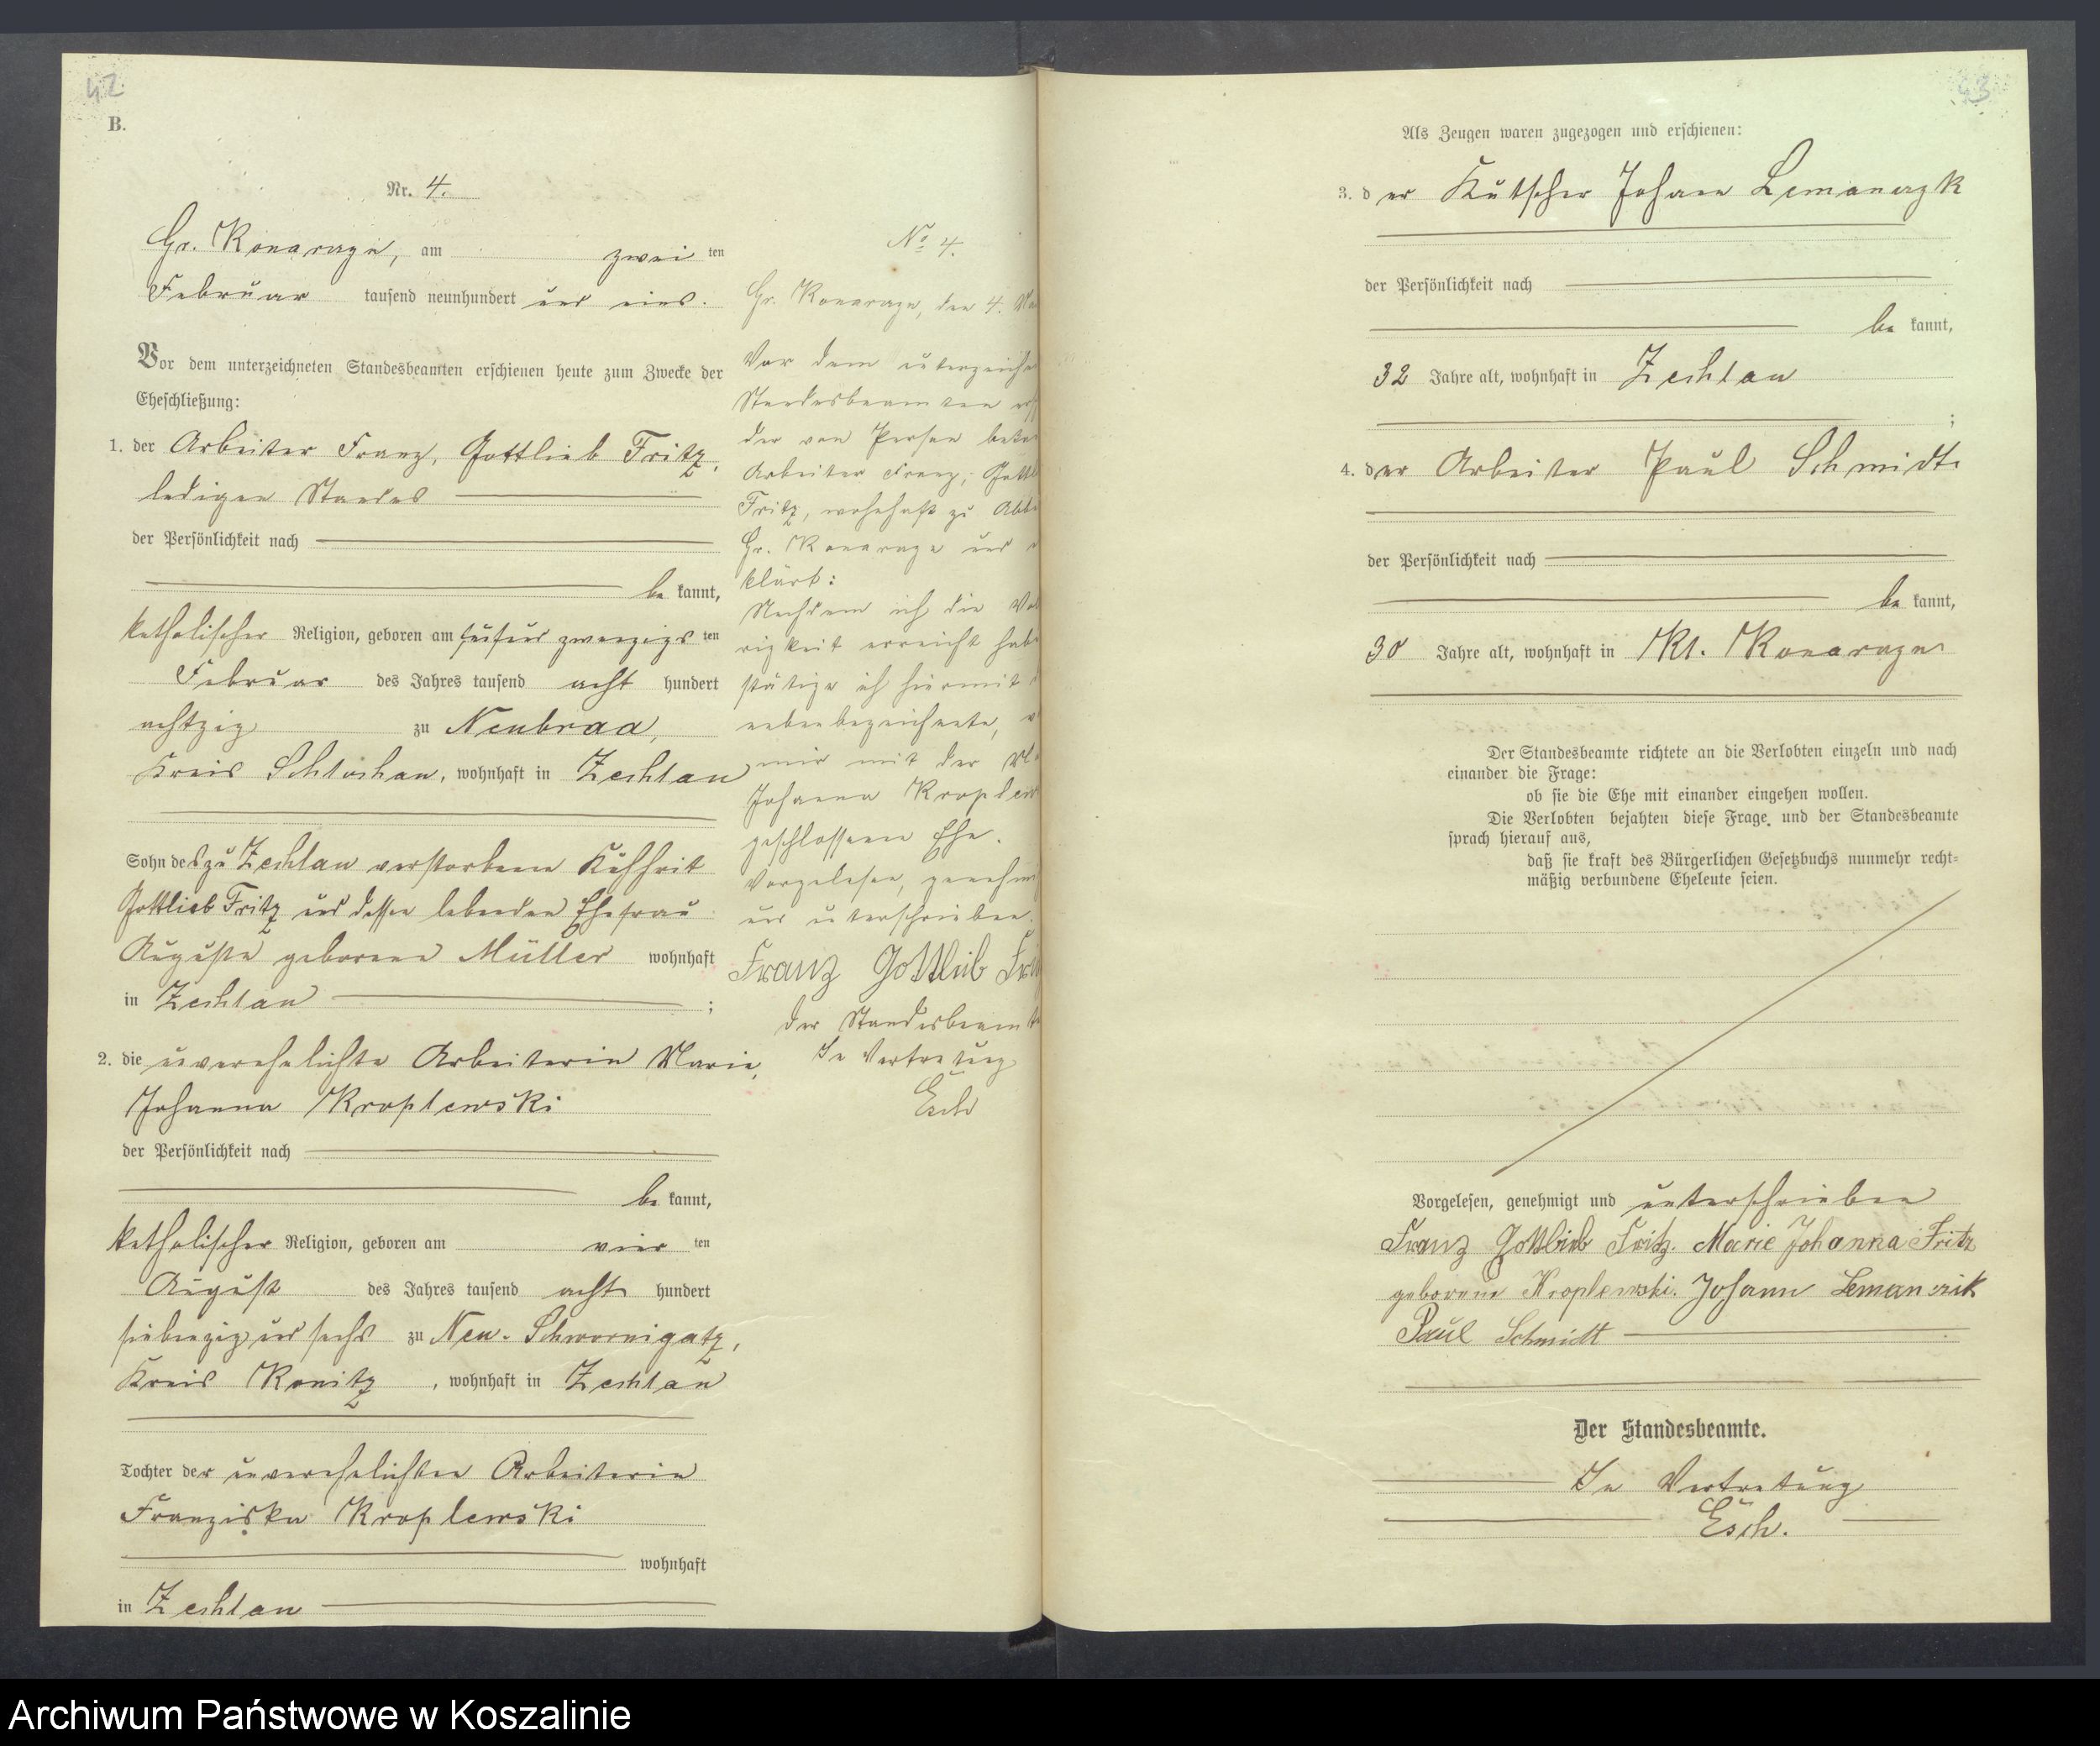 42
B.
Nr. 4.
Gr. Konarzyn, am zwei ten
Februar tausend neunhundert und eins.
Vor dem unterzeichneten Standesbeamten erschienen heute zum Zwecke der
Eheschließung:
1. der Arbeiter Franz, Gottlieb Fritz,
ledigen Standes
der Persönlichkeit nach
be kannt,
katholischer Religion, geboren am fünfundzwanzigs ten
Februar des Jahres tausend acht hundert
achtzig zu Neubraa,
Kreis Schlochau, wohnhaft in Zechlau
Sohn des zu Zechlau verstorbenen Kuhhirt
Gottlieb Fritz und dessen lebenden Ehefrau
Auguste geborene Müller wohnhaft
in Zechlau ;
2. die unverehelichte Arbeiterin Marie,
Johanna Kroplewski
der Persönlichkeit nach
be kannt,
katholischer Religion, geboren am vier ten
August des Jahres tausend acht hundert
siebenzig und sechs zu Neu-Schwornigatz,
Kreis Konitz, wohnhaft in Zechlau
Tochter der unverehelichten Arbeiterin
Franziska Kroplewski
wohnhaft
in Zechlau
No 4.
Gr. Konarzyn, den 4.
Vor dem unterzeichne
Standesbeamten ersch
der von Person bekan
Arbeiter Franz, Gottl
Fritz, wohnhaft zu Abb
Gr. Konarzyn und e
klärt:
Nachdem ich die Vol
rigkeit erreicht habe
stätige ich hiermit d
nebenbezeichnete, v
mir mit der
Johanna Kroplew
geschlossene Ehe.
Vorgelesen, genehmi
und unterschrieben.
Franz Gottlieb Fri
Der Standesbeamte
In Vertretung
Esch
43
Als Zeugen waren zugezogen und erschienen:
3. der Kutscher Johann Lemanczyk
der Persönlichkeit nach
be kannt,
32 Jahre alt, wohnhaft in Zechlau
;
4. der Arbeiter Paul Schmidt
der Persönlichkeit nach
be kannt,
30 Jahre alt, wohnhaft in Kl. Konarzyn
Der Standesbeamte richtete an die Verlobten einzeln und nach
einander die Frage:
ob sie die Ehe mit einander eingehen wollen.
Die Verlobten bejahten diese Frage und der Standesbeamte
sprach hierauf aus,
daß sie kraft des Bürgerlichen Gesetzbuchs nunmehr recht=
mäßig verbundene Eheleute seien.
Vorgelesen, genehmigt und unterschrieben
Franz Gottlieb Fritz. Marie Johanna Fritz
geborene Kroplewski. Johann Lemanczik
Paul Schmidt
Der Standesbeamte.
In Vertretung
Esch.
Archiwum Państwowe w Koszalinie